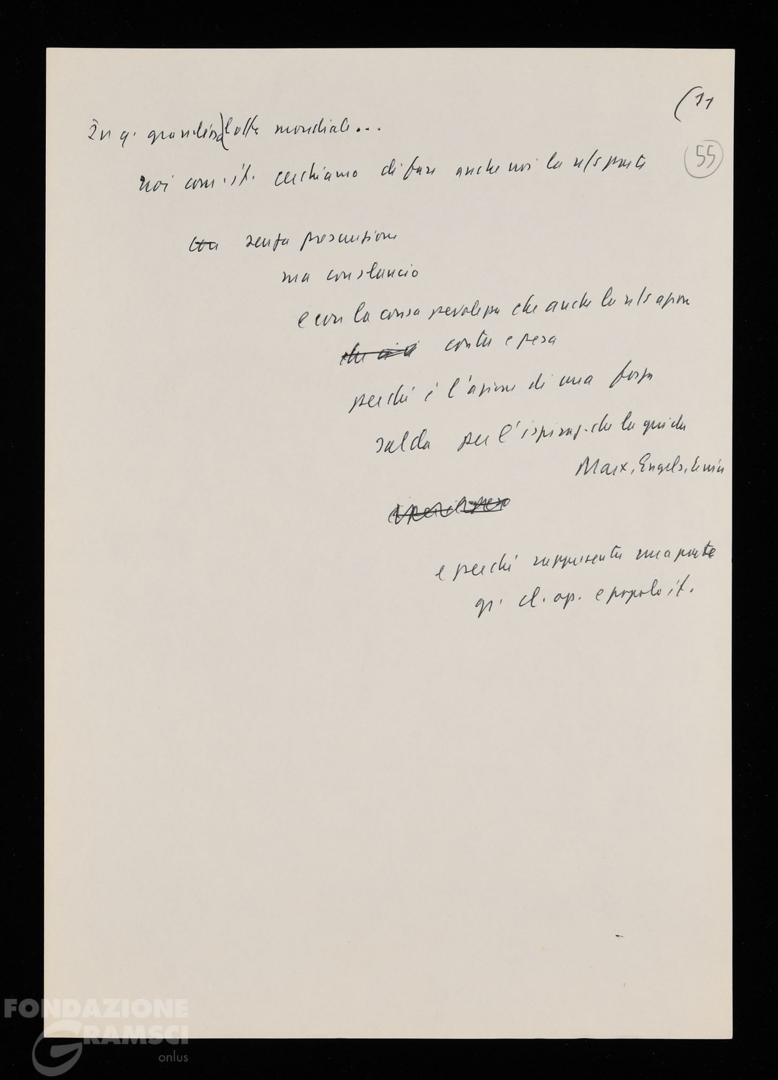 (11
55
In q. grandiosa lotta mondiale...
noi com. it. cerchiamo di fare anche noi la n/s parte
con senza presunzione
ma con slancio
e con la consapevolezza che anche la n/s azione
conta e pesa
perché è l'azione di una forza
salda per l'ispiraz. che la guida
Marx, Engels, Lenin
e perché rappresenta una parte
gr. cl. op. e popolo it.
FONDAZIONE
GRAMSCI
onlus